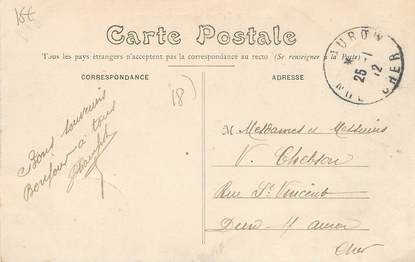 15€
Carte Postale
Tous les pays étrangers n'acceptent pas la correspondance au recto (Se renseigner à la Poste)
CORRESPONDANCE
ADRESSE
25-1
12
CHER
18)
Bons souvenirs
Bonjour à tous
M. Mesdames et Messieurs
V.
Rue St Vincent
Dun-s/-auron
Cher